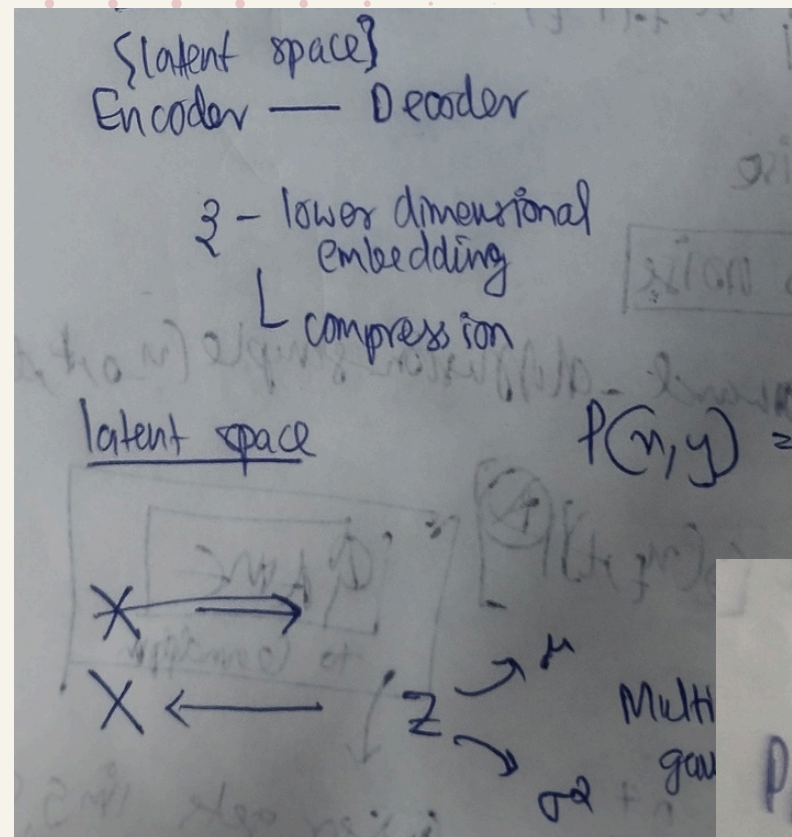 {latent space}
Encoder — Decoder
z - lower dimensional
embedding
compression
latent space
P(x, y) =
X ⟹
X ← z
μ
σ2
Multi
gau
P